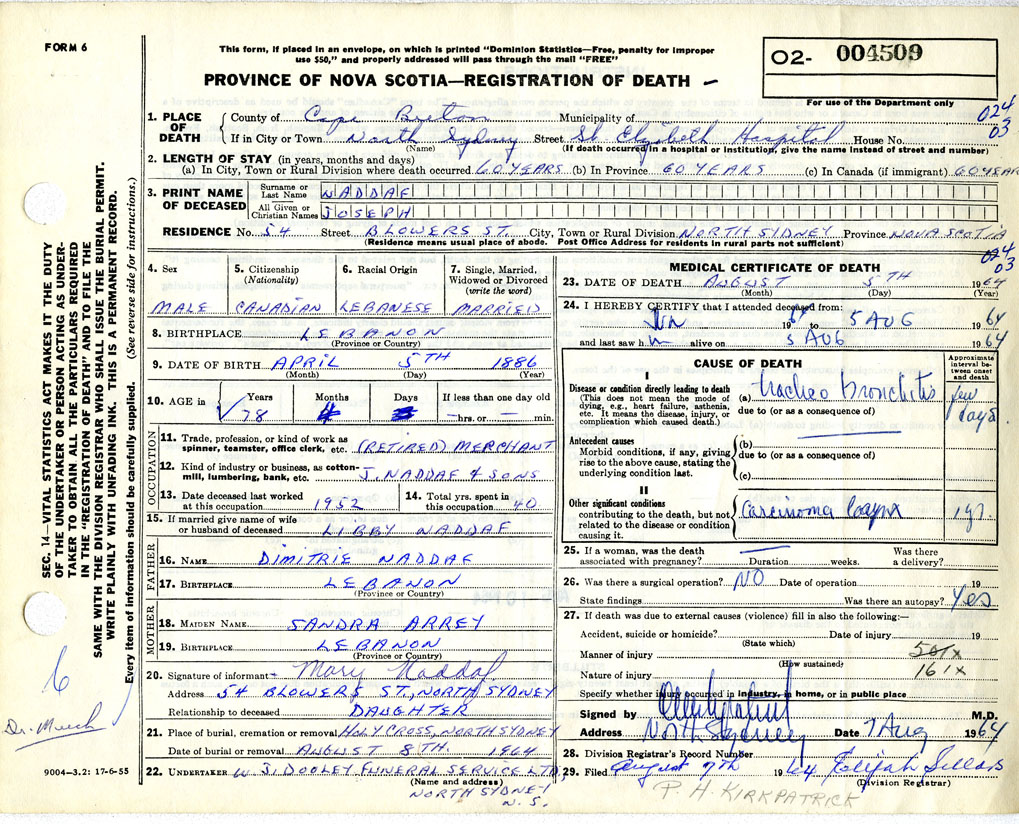 FORM 6
This form, if placed in an envelope, on which is printed "Dominion Statistics—Free, penalty for improper
use $50," and properly addressed will pass through the mail "FREE"
PROVINCE OF NOVA SCOTIA—REGISTRATION OF DEATH
02- 004509
For use of the Department only
024
03
1. PLACE OF DEATH
County of Cape Breton Municipality of
If in City or Town North Sydney Street St Elizabeth Hospital House No.
(Name) (If death occurred in a hospital or institution, give the name instead of street and number)
2. LENGTH OF STAY (in years, months and days)
(a) In City, Town or Rural Division where death occurred 60 YEARS (b) In Province 60 YEARS (c) In Canada (if immigrant) 60 YEAR
3. PRINT NAME OF DECEASED
Surname or Last Name NADDAF
All Given or Christian Names JOSEPH
RESIDENCE No. 54 Street BLOWERS ST. City, Town or Rural Division NORTH SIDNEY Province NOVA SCOTIA
(Residence means usual place of abode. Post Office Address for residents in rural parts not sufficient)
024
03
4. Sex MALE
5. Citizenship (Nationality) CANADIAN
6. Racial Origin LEBANESE
7. Single, Married, Widowed or Divorced (write the word) MARRIED
8. BIRTHPLACE LEBANON
(Province or Country)
9. DATE OF BIRTH APRIL 5TH 1886
(Month) (Day) (Year)
10. AGE in Years 78 Months 4 Days If less than one day old hrs. or min.
OCCUPATION
11. Trade, profession, or kind of work as spinner, teamster, office clerk, etc. (RETIRED) MERCHANT
12. Kind of industry or business, as cotton-mill, lumbering, bank, etc. J. NADDAF & SONS
13. Date deceased last worked at this occupation 1952
14. Total yrs. spent in this occupation 40
15. If married give name of wife or husband of deceased LIBBY NADDAF
FATHER
16. NAME DIMITRIE NADDAF
17. BIRTHPLACE LEBANON
(Province or Country)
MOTHER
18. MAIDEN NAME SANDRA ARREY
19. BIRTHPLACE LEBANON
(Province or Country)
20. Signature of informant Mary Naddaf
Address 54 BLOWERS ST., NORTH SYDNEY
Relationship to deceased DAUGHTER
21. Place of burial, cremation or removal HOLY CROSS, NORTH SYDNEY
Date of burial or removal AUGUST 8TH. 1964
22. UNDERTAKER W. J. DOOLEY FUNERAL SERVICE LTD,
(Name and address)
NORTH SYDNEY
N. S.
MEDICAL CERTIFICATE OF DEATH
23. DATE OF DEATH AUGUST 5TH 1964
(Month) (Day) (Year)
24. I HEREBY CERTIFY that I attended deceased from:
Jan 1964 to 5 AUG 1964
and last saw him alive on 5 AUG 1964
CAUSE OF DEATH
Approximate interval between onset and death
I
Disease or condition directly leading to death
(This does not mean the mode of dying, e.g., heart failure, asthenia, etc. It means the disease, injury, or complication which caused death.)
(a) tracheo Bronchitis few days
due to (or as a consequence of)
Antecedent causes
Morbid conditions, if any, giving rise to the above cause, stating the underlying condition last.
(b)
due to (or as a consequence of)
(c)
II
Other significant conditions
contributing to the death, but not related to the disease or condition causing it.
Carcinoma larynx 1 yr.
25. If a woman, was the death associated with pregnancy? Duration weeks. Was there a delivery?
26. Was there a surgical operation? NO Date of operation 19
State findings Was there an autopsy? Yes
27. If death was due to external causes (violence) fill in also the following:—
Accident, suicide or homicide? Date of injury 19
(State which)
Manner of injury 501x
(How sustained)
Nature of injury 161x
Specify whether injury occurred in industry, in home, or in public place
Signed by M.D.
Address North Sydney Date 7 Aug 1964
28. Division Registrar's Record Number
29. Filed August 7th 1964 Elijah Sellars
(Division Registrar)
P. H. KIRKPATRICK
SEC. 14—VITAL STATISTICS ACT MAKES IT THE DUTY
OF THE UNDERTAKER OR PERSON ACTING AS UNDER-
TAKER TO OBTAIN ALL THE PARTICULARS REQUIRED
IN THE "REGISTRATION OF DEATH" AND TO FILE THE
SAME WITH THE DIVISION REGISTRAR WHO SHALL ISSUE THE BURIAL PERMIT.
WRITE PLAINLY WITH UNFADING INK. THIS IS A PERMANENT RECORD.
Every item of information should be carefully supplied. (See reverse side for instructions.)
6
Dr.
9004—3.2: 17-6-55